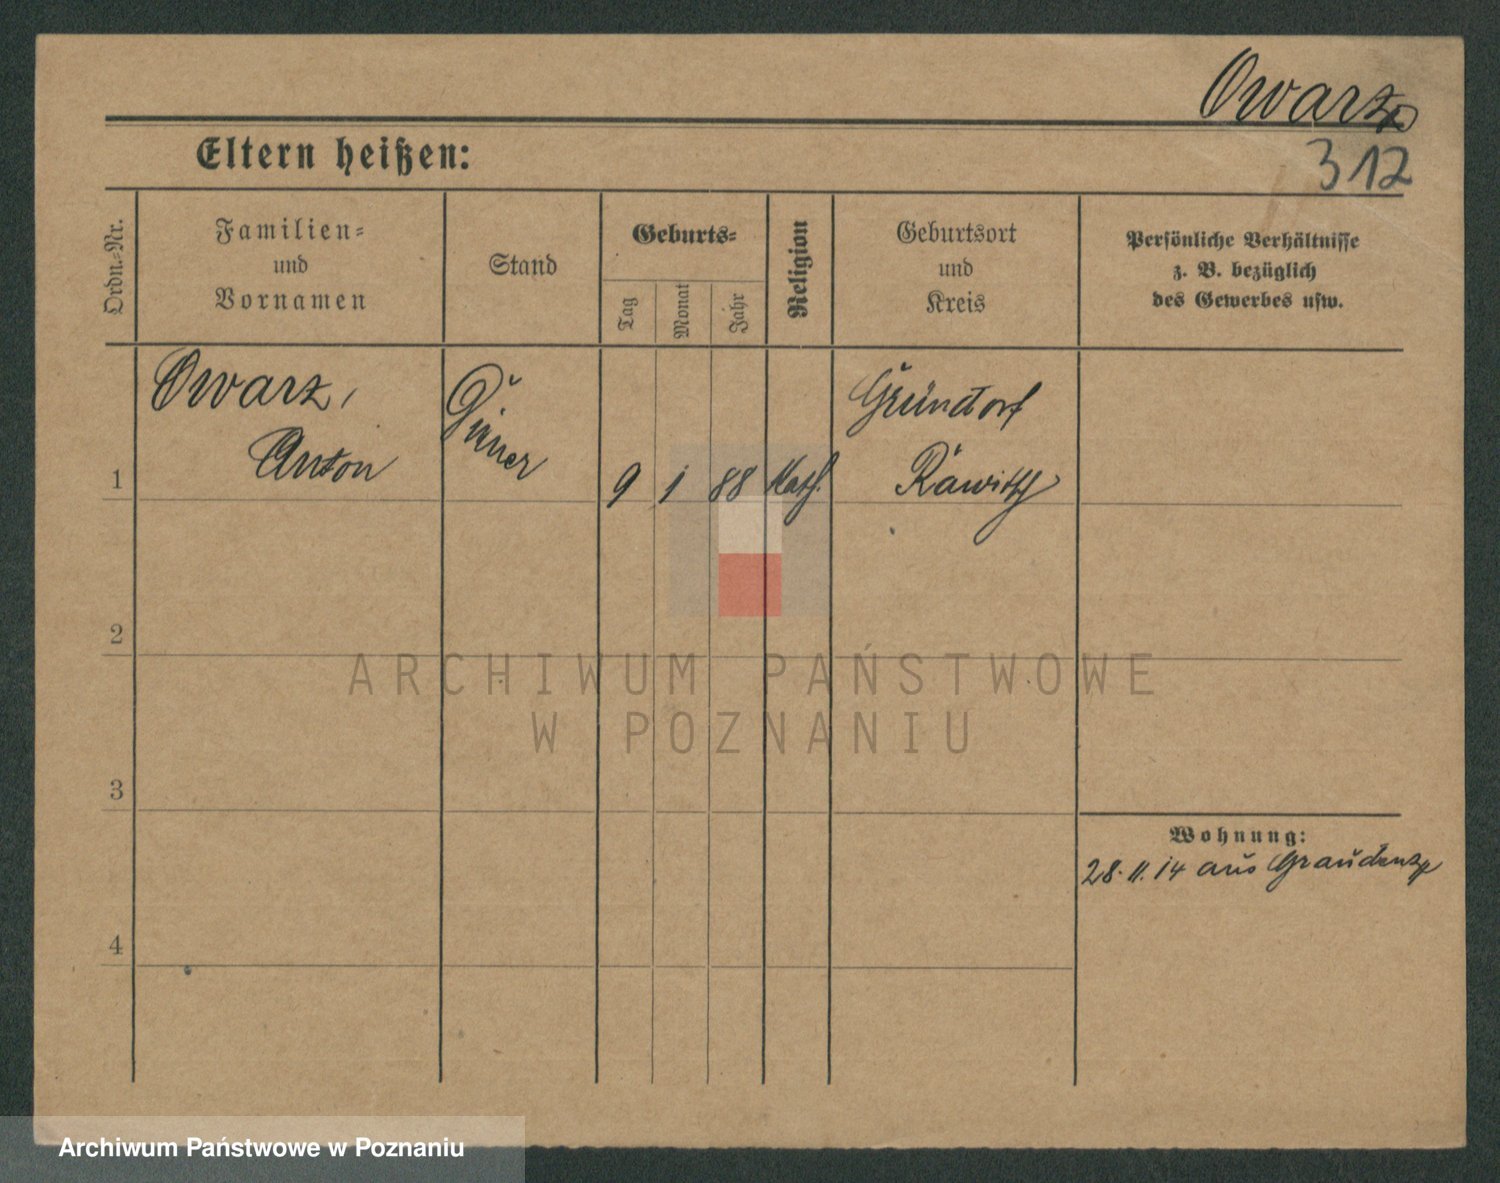 Owarz
312
Eltern heißen:
Ordn.-Nr.
Familien-
und
Vornamen
Stand
Geburts-
Tag
Monat
Jahr
Religion
Geburtsort
und
Kreis
Persönliche Verhältnisse
z. B. bezüglich
des Gewerbes usw.
Owarz,
Anton
1
9 1 88 Kath.
Gründorf
Rawitsch
2
3
4
Wohnung:
28.11.14 aus Graudenz
ARCHIWUM PAŃSTWOWE
W POZNANIU
Archiwum Państwowe w Poznaniu